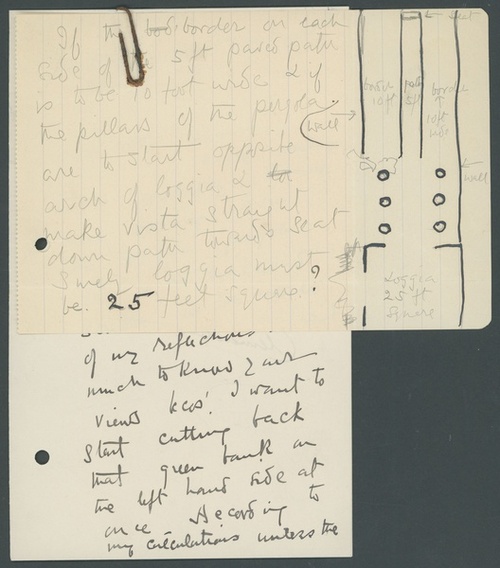 If the border on each
side of the 5ft paved path
is to be 10 foot wide & if
the pillars of the pergola
are to start opposite
arch of loggia & to
make vista straight
down path towards seat
surely loggia must
be 25 feet square?
seat
border
10ft
path
5ft
border
10ft
wide
wall
wall
Loggia
25 ft
square
of my reflections.
much to know your
views
I want to
start cutting back
that green bank on
the left hand side at
once According to
my calculations unless the